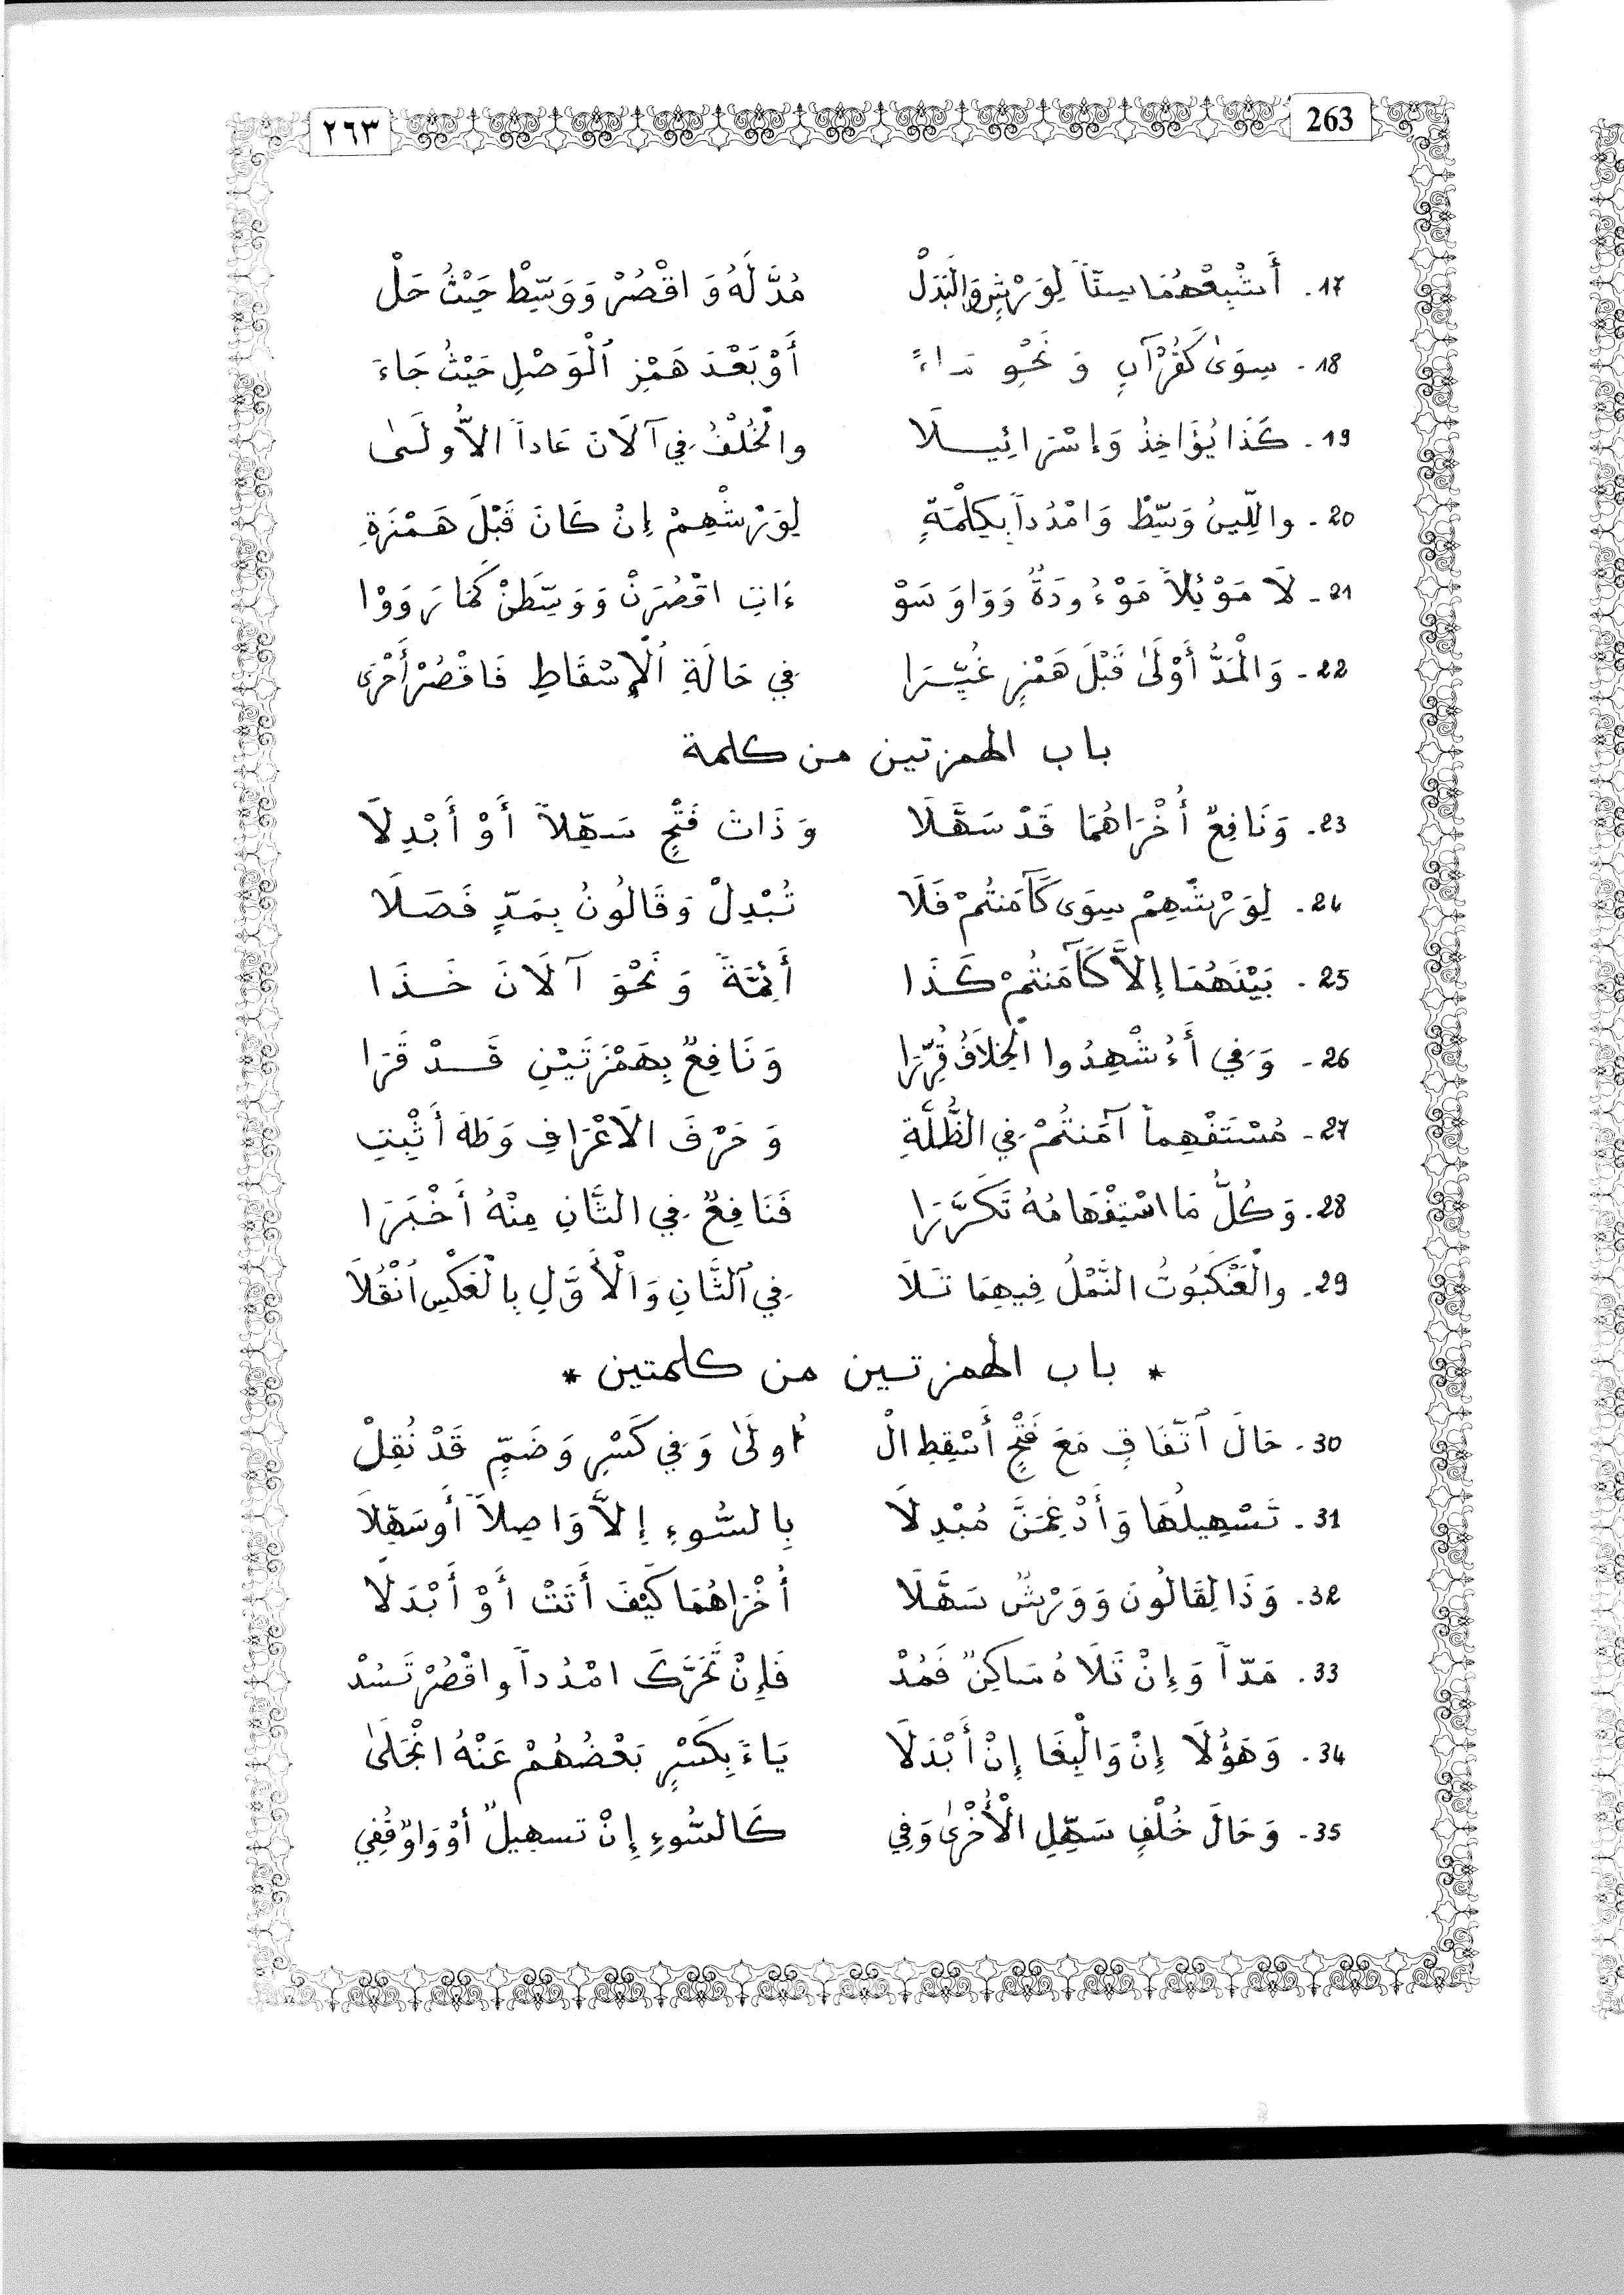 ٢٦٣ 263
17. أَشْبِعْهُمَا سِتّاً لِوَرْشٍ وَالْبَدَلْ مُدَّ لَهُ وَ اقْصُرْ وَوَسِّطْ حَيْثُ حَلْ
18. سِوَىٰ كَقُرْآنٍ وَ نَحْوِ مَاءً أَوْ بَعْدَ هَمْزِ ٱلْوَصْلِ حَيْثُ جَاءَ
19. كَذَا يُؤَاخِذُ وَإِسْرَائِيلَا والْخُلْفُ فِي آلَانَ عَاداً الأُولَىٰ
20. واللِّينُ وَسِّطْ وَامْدُداً بِكِلْمَةٍ لِوَرْشِهِمْ إِنْ كَانَ قَبْلَ هَمْزَةِ
21. لَا مَوْئِلاً مَوْءُودَةٌ وَوَاوَ سَوْ ءَاتِ اقْصُرَنْ وَوَسِّطَنْ كَمَا رَوَوْا
22. وَالْمَدُّ أَوْلَىٰ قَبْلَ هَمْزٍ غُيِّرَا فِي حَالَةِ ٱلْإِسْقَاطِ فَاقْصُرْ أَحْرَى
باب الهمزتين من كلمة
23. وَنَافِعٌ أُخْرَاهُمَا قَدْ سَهَّلَا وَذَاتَ فَتْحٍ سَهِّلاً أَوْ أَبْدِلَا
24. لِوَرْشِهِمْ سِوَى كَآمَنتُمْ فَلَا تُبْدِلْ وَقَالُونُ بِمَدٍّ فَصَلَا
25. بَيْنَهُمَا إِلاَّ كَآمَنتُمْ كَذَا أَئِمَّةً وَ نَحْوَ آلَانَ خَذَا
26. وَفِي أَءُشْهِدُوا الْخِلَافُ قُرِّرَا وَنَافِعٌ بِهَمْزَتَيْنِ قَدْ قَرَا
27. مُسْتَفْهِماً آمَنتُمْ فِي الظُّلَّةِ وَ حَرْفَ الَاعْرَافِ وَطَهَ أَثْبِتِ
28. وَكُلُّ مَا اسْتِفْهَامُهُ تَكَرَّرَا فَنَافِعٌ فِي الثَّانِ مِنْهُ أَخْبَرَا
29. والْعَنْكَبُوتُ النَّمْلُ فِيهِمَا تَلَا فِي ٱلثَّانِ وَالْأَوَّلِ بِالْعَكْسِ انْقُلَا
* باب الهمزتين من كلمتين *
30. حَالَ ٱتِّفَاقٍ مَعَ فَتْحٍ أَسْقِطِ الْ أُولَىٰ وَفِي كَسْرٍ وَضَمٍّ قَدْ نُقِلْ
31. تَسْهِيلُهَا وَأَدْغِمَنَّ مُبْدِلَا بِالسُّوءِ إِلاَّ وَاصِلاً أَوسَهِّلَا
32. وَذَا لِقَالُونَ وَوَرْشٌ سَهَّلَا أُخْرَاهُمَا كَيْفَ أَتَتْ أَوْ أَبْدَلَا
33. مَدّاً وَإِنْ تَلَاهُ سَاكِنٌ فَمُدْ فَإِنْ تَحَرَّكَ امْدُداً واقْصُرْ تَسُدْ
34. وَهَؤُلَا إِنْ وَالْبِغَا إِنْ أَبْدَلَا يَاءً بِكَسْرٍ بَعْضُهُمْ عَنْهُ انْجَلَىٰ
35. وَحَالَ خُلْفٍ سَهِّلِ الْأُخْرَىٰ وَفِي كَالسُّوءِ إِنْ تسهِيلٌ أَوْ وَاوٌ قُفِي